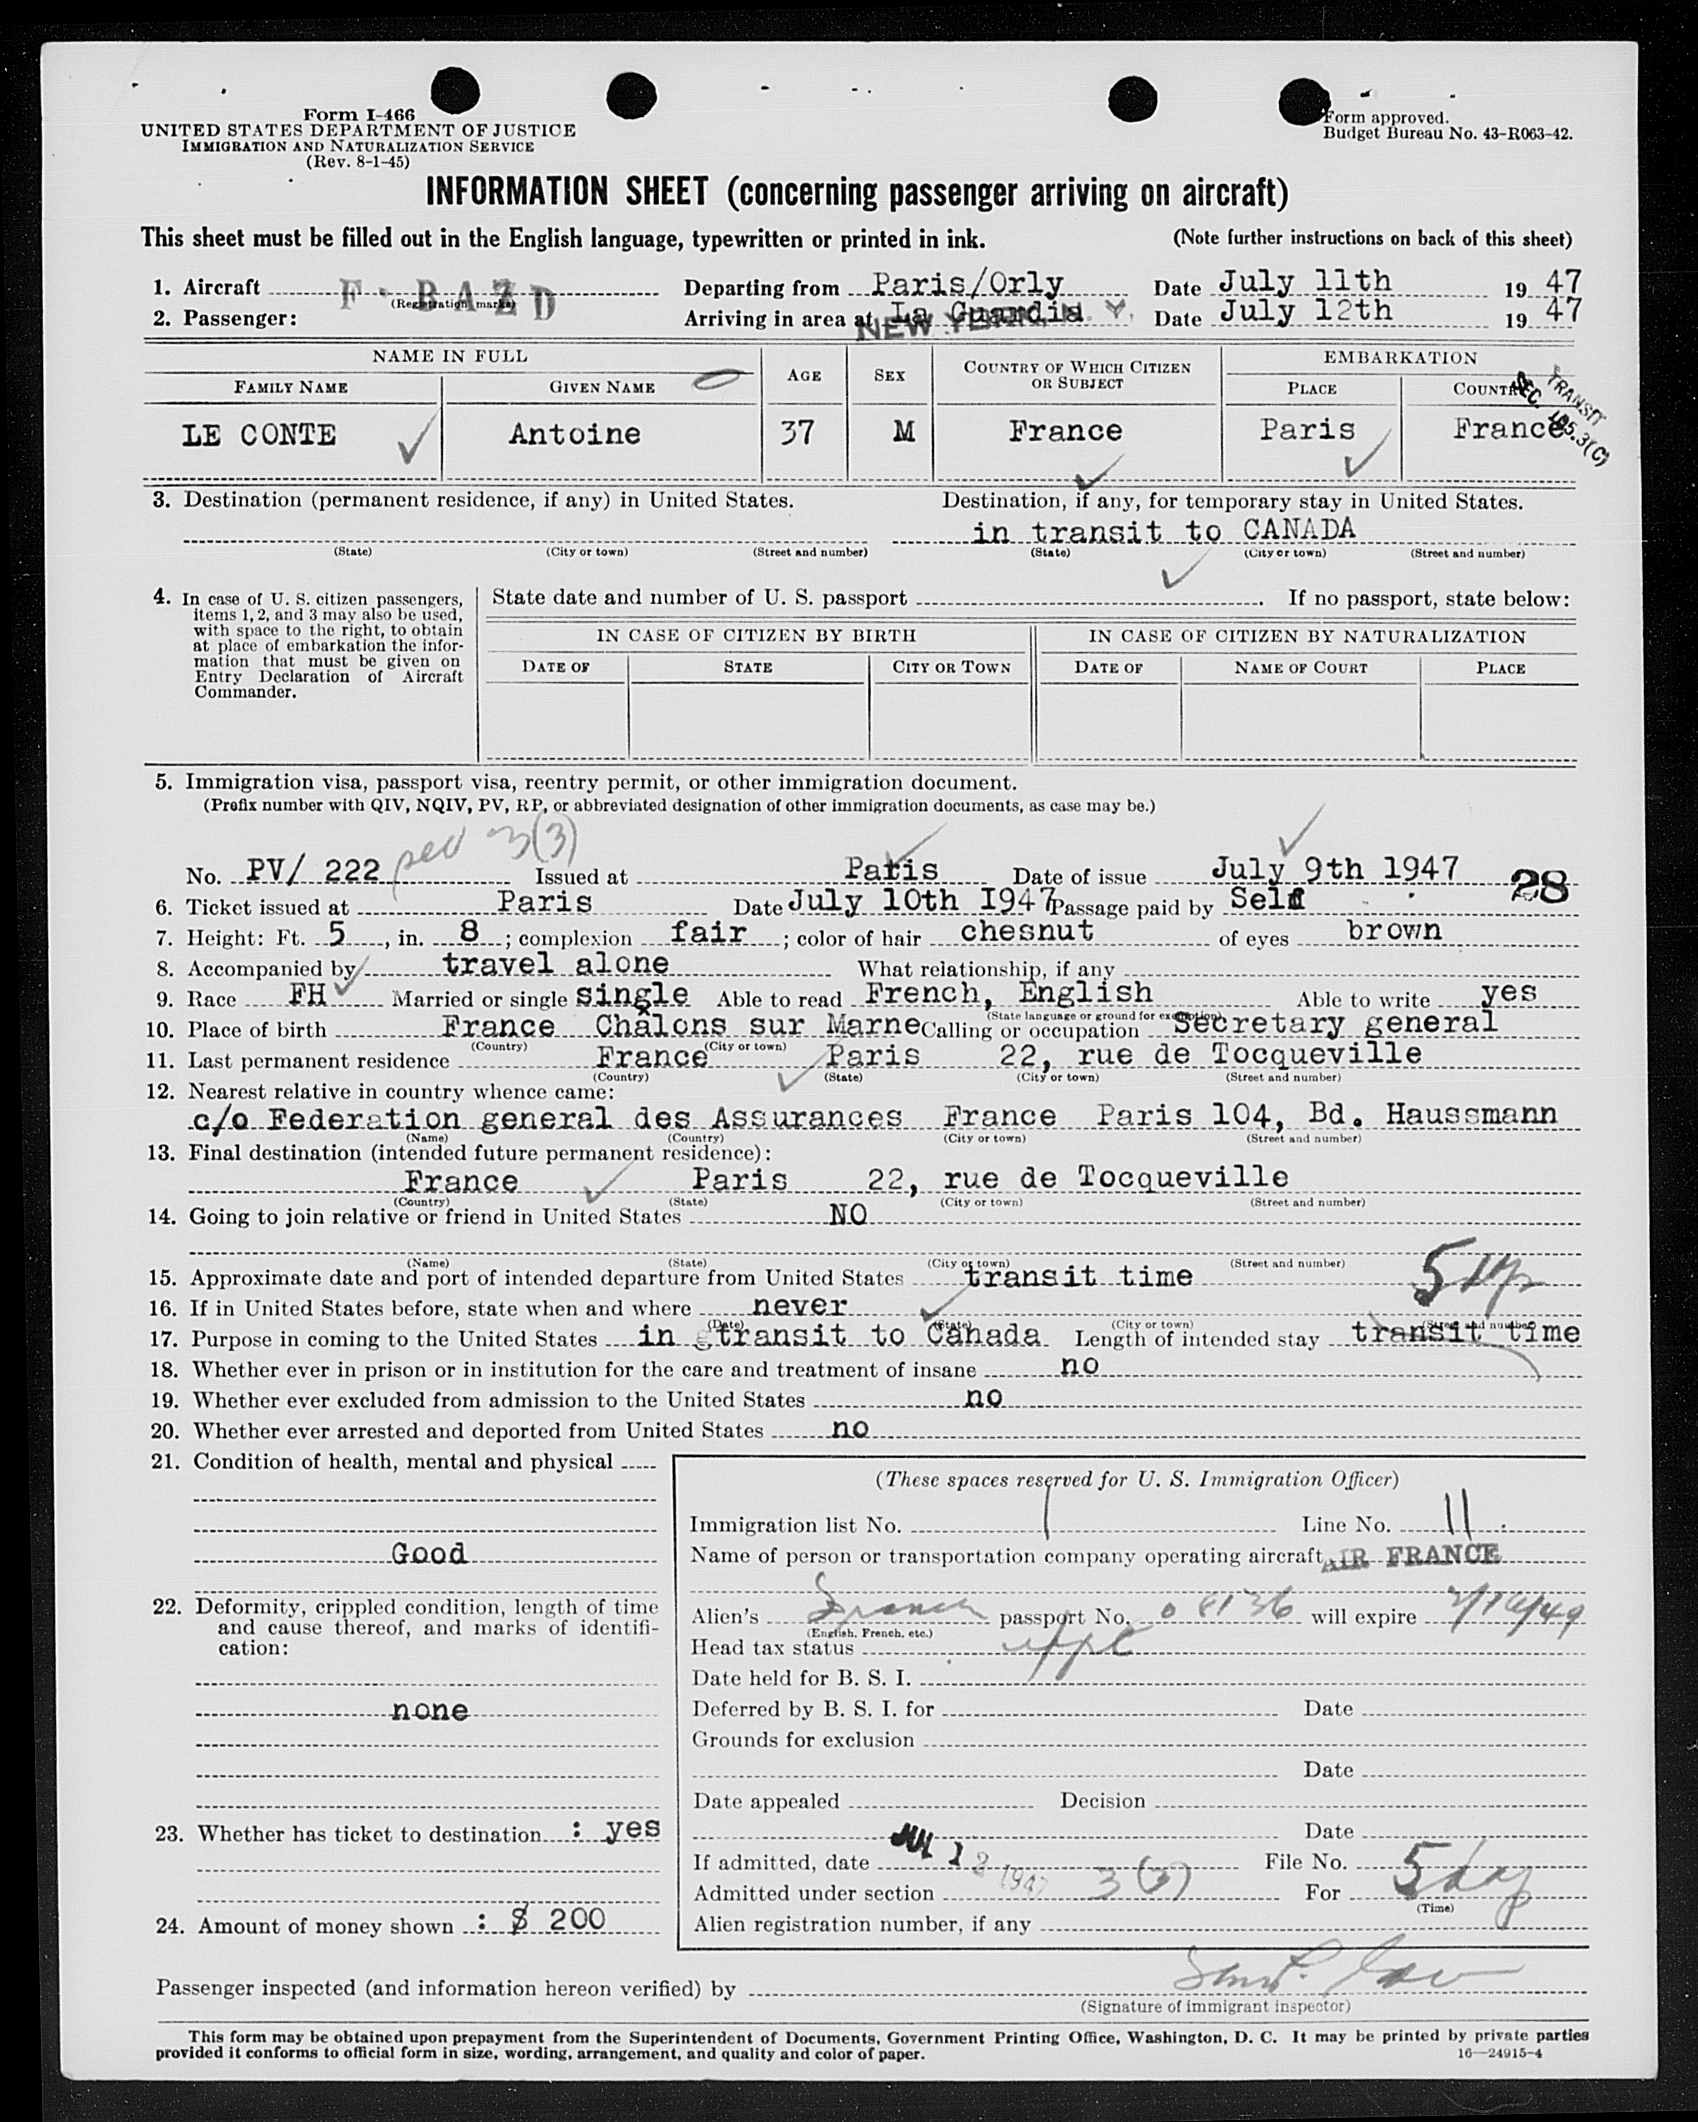 Form I-466
UNITED STATES DEPARTMENT OF JUSTICE
IMMIGRATION AND NATURALIZATION SERVICE
(Rev. 8-1-45)
Form approved.
Budget Bureau No. 43-R063-42.
INFORMATION SHEET (concerning passenger arriving on aircraft)
This sheet must be filled out in the English language, typewritten or printed in ink. (Note further instructions on back of this sheet)
1. Aircraft F-BAZD Departing from Paris/Orly Date July 11th 1947
(Registration marks)
2. Passenger: Arriving in area at La Guardia NEW YORK, N. Y. Date July 12th 1947
NAME IN FULL AGE SEX COUNTRY OF WHICH CITIZEN OR SUBJECT EMBARKATION
FAMILY NAME GIVEN NAME PLACE COUNTRY
TRANSIT
SEC. 105.3(C)
LE CONTE Antoine 37 M France Paris France
3. Destination (permanent residence, if any) in United States. Destination, if any, for temporary stay in United States.
in transit to CANADA
(State) (City or town) (Street and number) (State) (City or town) (Street and number)
4. In case of U. S. citizen passengers, items 1, 2, and 3 may also be used, with space to the right, to obtain at place of embarkation the information that must be given on Entry Declaration of Aircraft Commander.
State date and number of U. S. passport . If no passport, state below:
IN CASE OF CITIZEN BY BIRTH IN CASE OF CITIZEN BY NATURALIZATION
DATE OF STATE CITY OR TOWN DATE OF NAME OF COURT PLACE
5. Immigration visa, passport visa, reentry permit, or other immigration document.
(Prefix number with QIV, NQIV, PV, RP, or abbreviated designation of other immigration documents, as case may be.)
3(3)
No. PV/ 222 Issued at Paris Date of issue July 9th 1947 28
6. Ticket issued at Paris Date July 10th 1947 Passage paid by Self
7. Height: Ft. 5, in. 8; complexion fair; color of hair chesnut of eyes brown
8. Accompanied by travel alone What relationship, if any
9. Race FH Married or single single Able to read French, English Able to write yes
(State language or ground for exemption)
10. Place of birth France Châlons sur Marne Calling or occupation Secretary general
(Country) (City or town)
11. Last permanent residence France Paris 22, rue de Tocqueville
(Country) (State) (City or town) (Street and number)
12. Nearest relative in country whence came:
c/o Federation general des Assurances France Paris 104, Bd. Haussmann
(Name) (Country) (City or town) (Street and number)
13. Final destination (intended future permanent residence):
France Paris 22, rue de Tocqueville
(Country) (State) (City or town) (Street and number)
14. Going to join relative or friend in United States NO
(Name) (State) (City or town) (Street and number)
15. Approximate date and port of intended departure from United States transit time 5
16. If in United States before, state when and where never
(Date) (State) (City or town) (Street and number)
17. Purpose in coming to the United States in transit to Canada Length of intended stay transit time
18. Whether ever in prison or in institution for the care and treatment of insane no
19. Whether ever excluded from admission to the United States no
20. Whether ever arrested and deported from United States no
21. Condition of health, mental and physical
Good
22. Deformity, crippled condition, length of time and cause thereof, and marks of identification:
none
23. Whether has ticket to destination : yes
24. Amount of money shown : $ 200
(These spaces reserved for U. S. Immigration Officer)
Immigration list No. 1 Line No. 11
Name of person or transportation company operating aircraft AIR FRANCE
Alien's French passport No. will expire
(English, French, etc.)
Head tax status
Date held for B. S. I.
Deferred by B. S. I. for Date
Grounds for exclusion
Date
Date appealed Decision
Date
If admitted, date JUL 12 1947 File No.
Admitted under section 3(3) For 5 day
(Time)
Alien registration number, if any
Passenger inspected (and information hereon verified) by
(Signature of immigrant inspector)
This form may be obtained upon prepayment from the Superintendent of Documents, Government Printing Office, Washington, D. C. It may be printed by private parties
provided it conforms to official form in size, wording, arrangement, and quality and color of paper. 16—24915-4